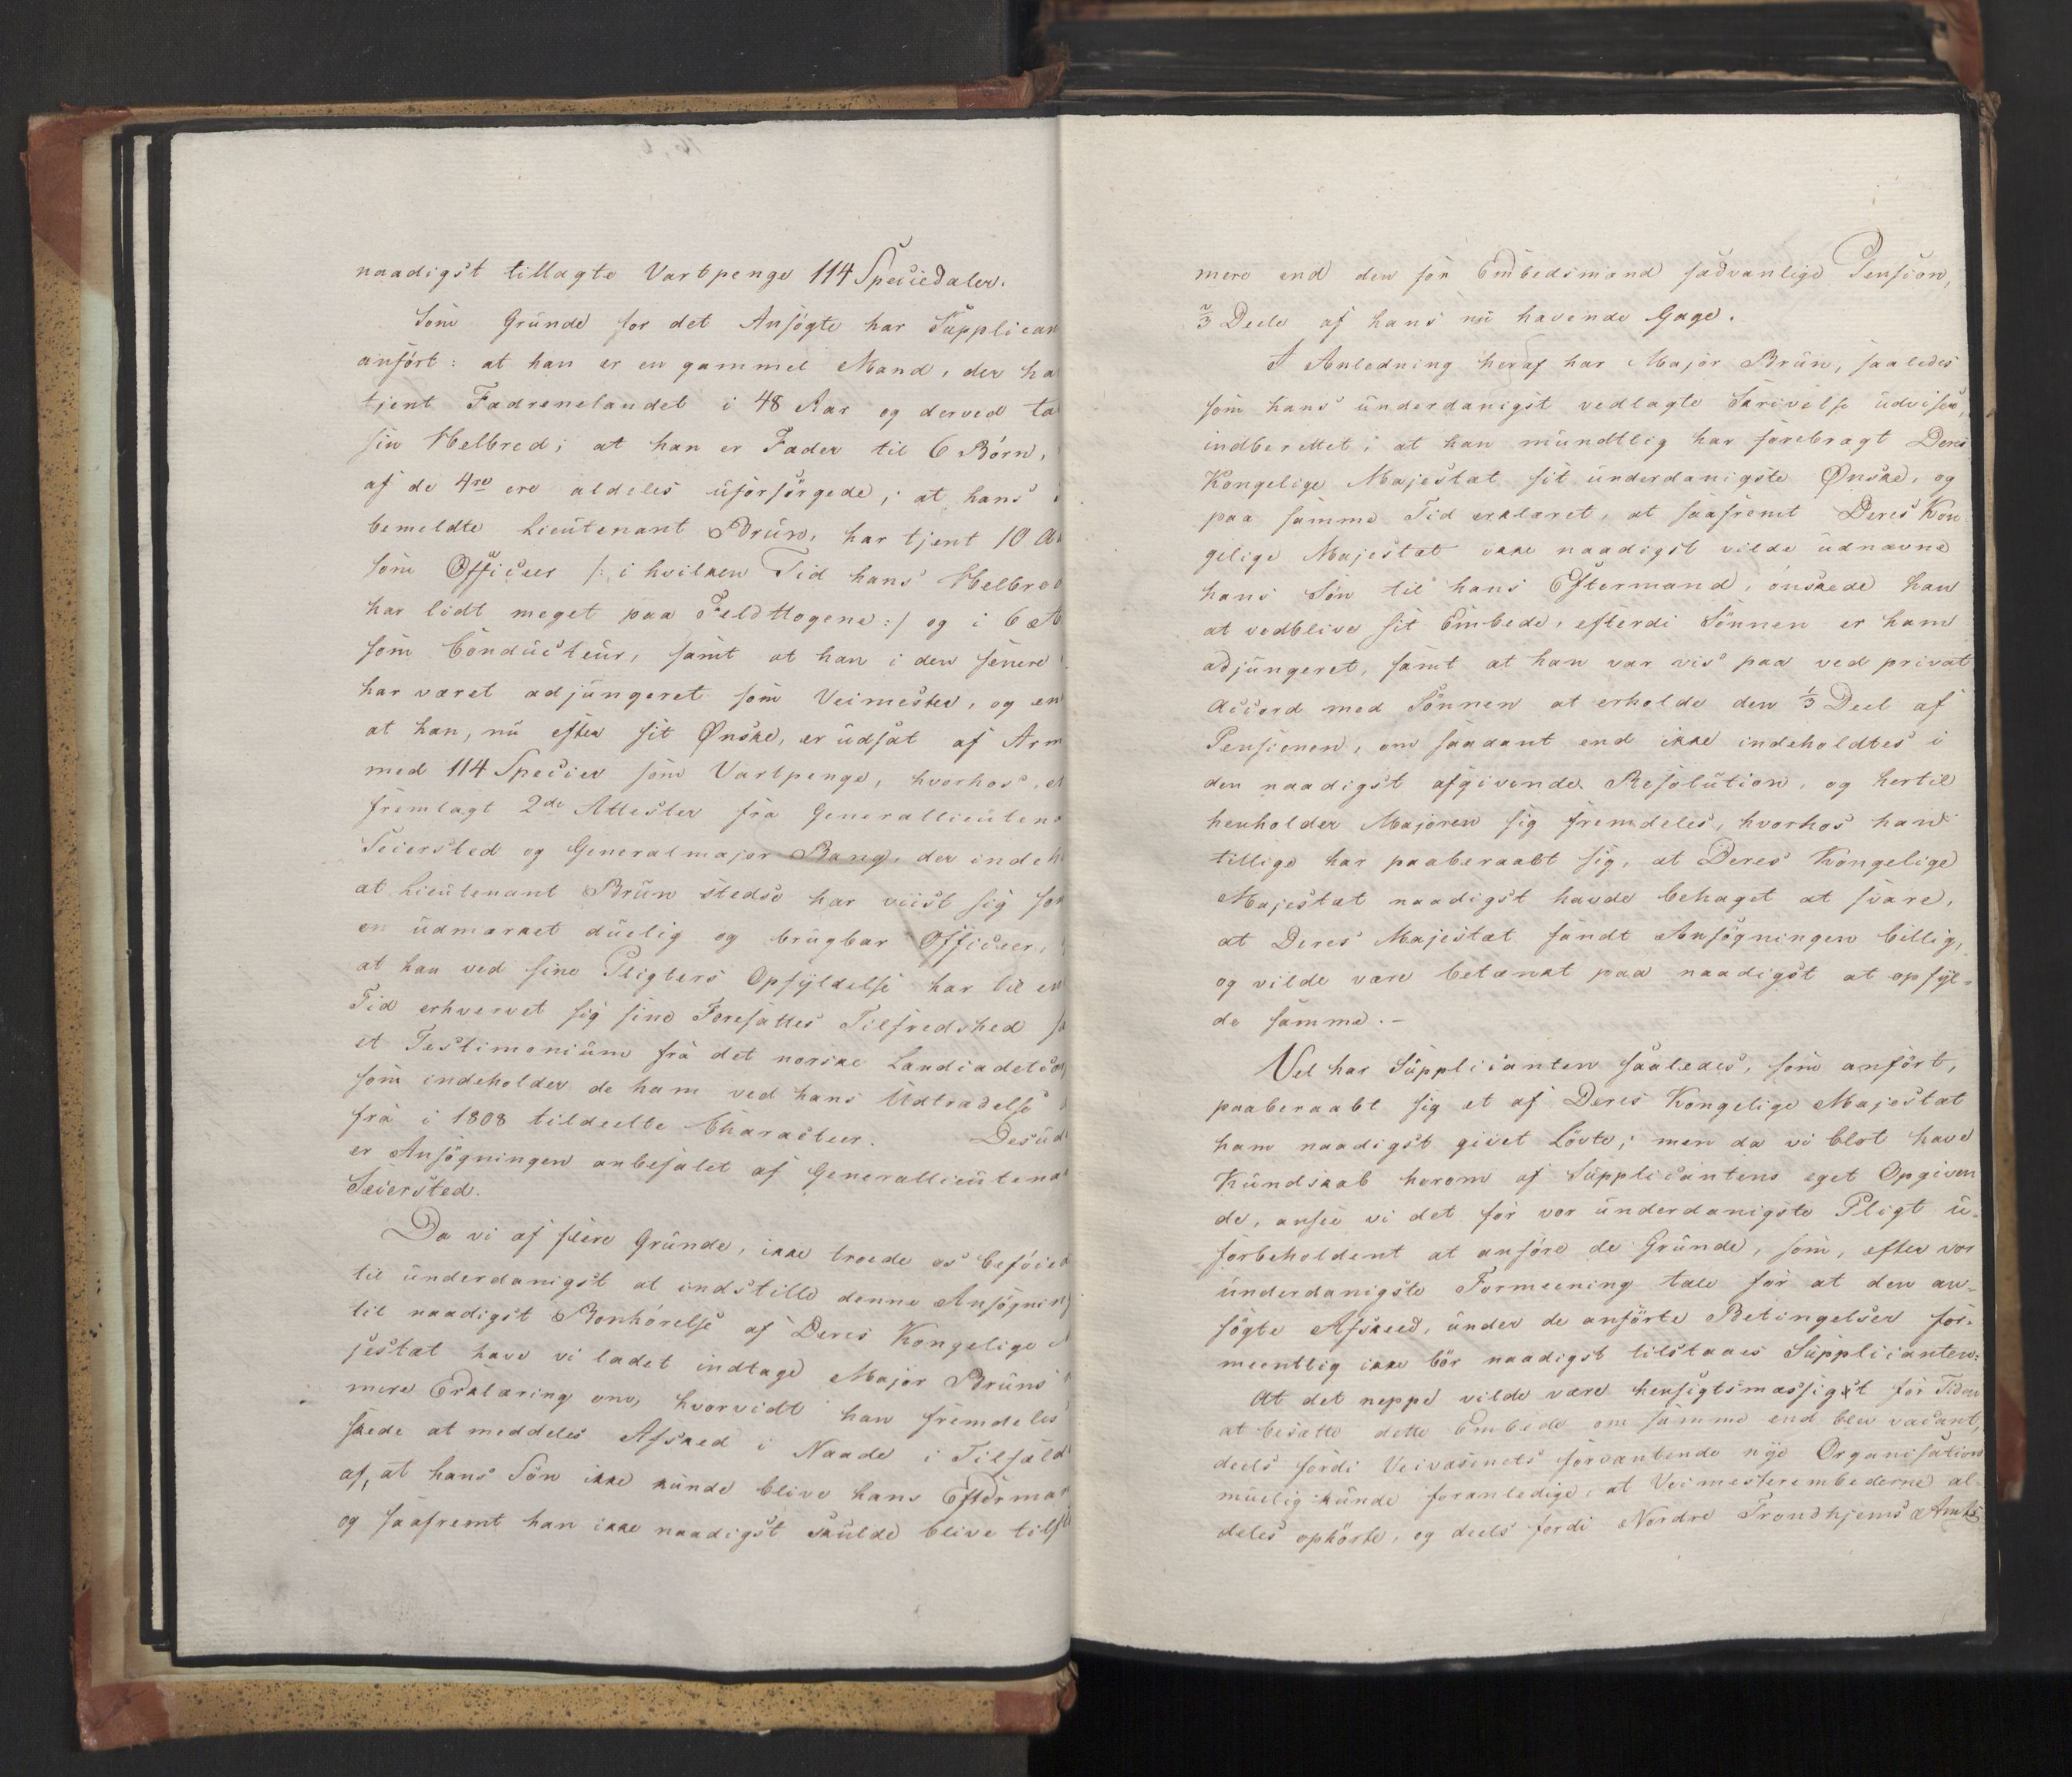 naadigst tillagte Vartpenge 114 Speciedaler.
Som Grunde for det Ansøgte har Supplican
anført: at han er en gammel Mand, der ha
tjent Fædrenelandet i 48 Aar og derved ta
sin Helbred; at han er Fader til 6 Børn,
af de 4re ere aldeles uforsørgede; at hans
bemeldte Lieutenant Brün, har tjent 10 Aa
som Officeer /: i hvilken Tid hans Helbred
har lidt meget paa Felttogene :/ og i 6
som Conducteur, samt at han i den senere
har været adjungeret som Veimester, og en
at han, nu efter sit Ønske, er udsat af Arm
med 114 Specier som Vartpenge, hvorhos, er
fremlagt 2de Attester fra Generallieutena
Seiersted og Generalmajor Bang, der indeh
at Lieutenant Brün stedse har viist sig som
en udmærket duelig og brugbar Officeer,
at han ved sine Pligters Opfyldelse har til en
Tid erhvervet sig sine Foresattes Tilfredshed
et Testimonium fra det norske Landcadetcor
som indeholder de ham ved hans Udtrædelse
fra i 1808 tildeelte Characteer. Desud
er Ansøgningen anbefalet af Generallieutena
Seiersted.
Da vi af flere Grunde, ikke troede os beføiet
til underdanigst at indstille denne Ansøgning
til naadigst Bønhørelse af Deres Kongelige
jestæt have vi ladet indtage Major Brüns
mere Erklæring om, hvorvidt han fremdeles
skede at meddeles Afsked i Naade i Tilfæld
af, at hans Søn ikke kunde blive hans Efterma
og saafremt han ikke naadigst skulde blive tilst
mere end den for Embedsmænd sædvanlige Pension,
2/3 Deele af hans nu havende Gage.
I Anledning heraf har Major Brün, saaledes
som hans underdanigst vedlagte Skrivelse udviser,
indberettet; at han mundtlig har forebragt Deres
Kongelige Majestæt sit underdanigste Ønske, og
paa samme Tid erklæret, at saafremt Deres Kon
gelige Majestæt ikke naadigst vilde udnævne
hans Søn til hans Eftermand, ønskede han
at vedblive sit Embede, efterdi Sønnen er ham
adjungeret, samt at han var vis paa ved privat
Accord med Sønnen at erholde den 1/3 Deel af
Pensionen, om saadant end ikke indeholdtes i
den naadigst afgivende Resolution, og hertil
henholder Majoren sig fremdeles, hvorhos han
tillige har paaberaabt sig, at Deres Kongelige
Majestæt naadigst havde behaget at svare,
at Deres Majestæt fandt Ansøgningen billig,
og vilde være betænkt paa naadigst at opfyl-
de samme. -
Vel har Supplicanten saaledes, som anført,
paaberaabt sig et af Deres Kongelige Majestæt
ham naadigst givet Løvte; men da vi blot have
Kundskab herom af Supplicantens eget Opgiven
de, ansee vi det for vor underdanigste Pligt u-
forbeholdent at anføre de Grunde, som, efter vor
underdanigste Formeening tale for at den an-
søgte Afskeed, under de anførte Betingelser for-
meentlig ikke bør naadigst tilstaaes Supplicanten:
At det neppe vilde være hensigtsmæssigt for Tiden
at besætte dette Embede om samme end blev vacant,
deels fordi Veivæsenets forventende nye Organisation
muelig kunde foranledige, at Veimesterembederne al-
deles ophørte, og deels fordi Nordre Trondhjems Amts